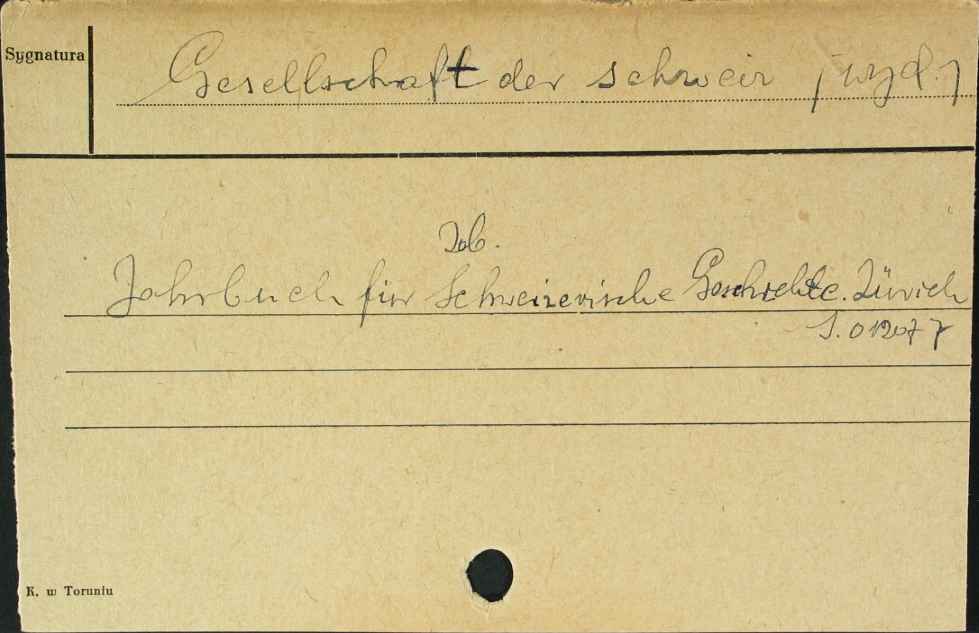 Sygnatura
Gesellschaft der schweiz /wyd./
Zob.
Jahrbuch für Schweizerische Geschichte. Zürich
S. 01207
K. w Toruniu